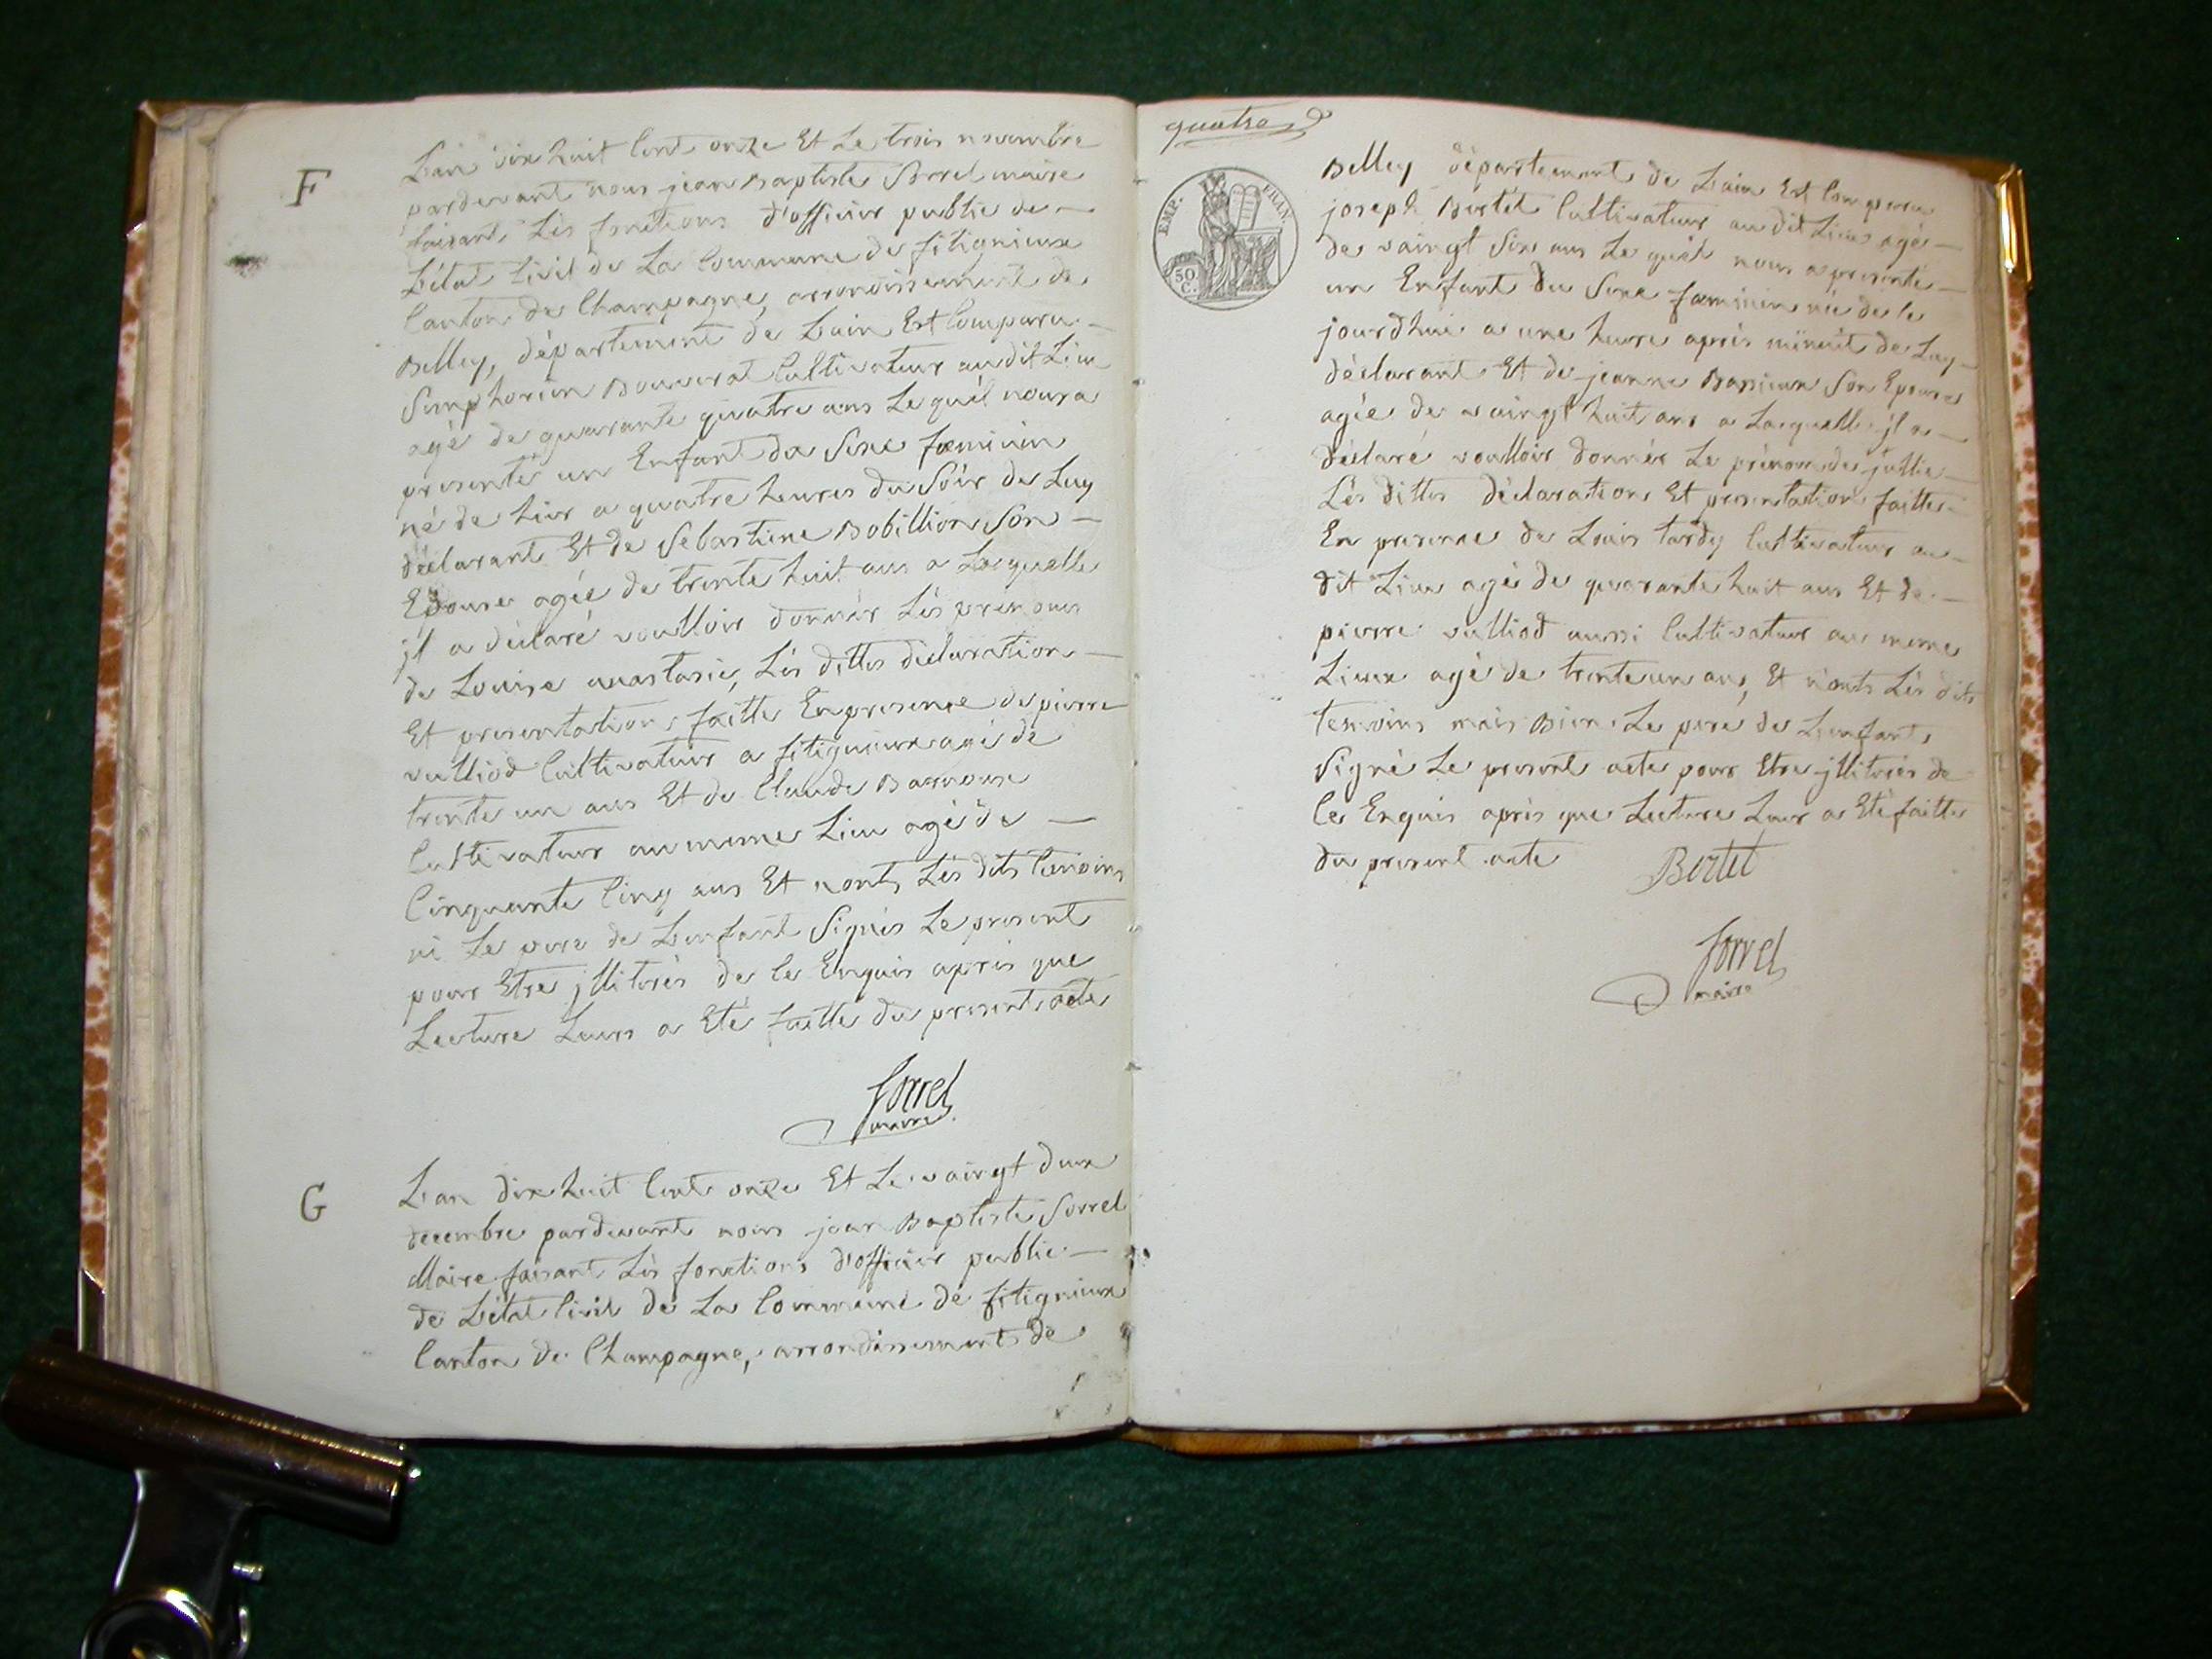 F
L'an dix huit Cent onze Et Le trois novembre
pardevant nous jean Baptiste Sorrel maire
faisant Lès fonctions d'officier public de —
L'état Civil de La Commune de fitignieux
Canton de Champagne, arrondissement de
Belley, département de Lain Est Comparu —
Simphorien Bouverat Cultivateur au dit Lieu
agé de quarante quatre ans Le quel nous a
presenté un Enfant du Sexe fœminin
né de hier a quatre heures du Soir de Luy
déclarant Et de Sébastiene Bobillion Son —
Epouse agée de trente huit ans a Laquelle
jl a déclaré voulloir donner Lès prenoms
de Louise anastasie, Lès dittes déclaration —
Et presentation faitte En presence de pierre
vulliod Cultivateur a fitignieux agé de
trente un ans Et de Claude Barnoux
Cultivateur au meme Lieu agé de —
Cinquante Cinq ans Et nonts Lès dits temoins
ni Le pere de Lenfant Signès Le present
pour Etre jllitérès de Ce Enquis apris que
Lecture Leurs a Eté faitte du present acte
Sorrel
maire
G
L'an dix huit Cent onze Et Le vaingt deux
decembre pardevant nous jean Baptiste Sorrel
Maire faisant Lès fonctions d'officier public —
de L'état Civil de La Commune de fitignieux
Canton de Champagne, arrondissement de
quatre
EMP. FRAN.
50 C.
Belley département de Lain Est Comparu
joseph Bertet Cultivateur au dit Lieu agé —
de vaingt Six ans Le quel nous a presenté —
un Enfant du Sexe fœminin née de Ce
jourdhui a une heure après minuit de Luy —
déclarant Et de jeanne Bassieux Son Epouse
agée de vaingt huit ans a Laquelle jl a —
déclaré voulloir donnér Le prénom de jullie —
Lès dittes déclaration Et presentation faittes —
En presence de Louis tardy Cultivateur au —
dit Lieu agé de quarante huit ans Et de —
pierre vulliod aussi Cultivateur au meme
Lieux agé de trente un ans, Et n'onts Lès dits
temoins mais Bien Le pere de Lenfant
Signé Le present acte pour Etre jllitérés de
Ce Enquis après que Lecture Leur a Eté faitte
du present acte
Bertet
Sorrel
maire